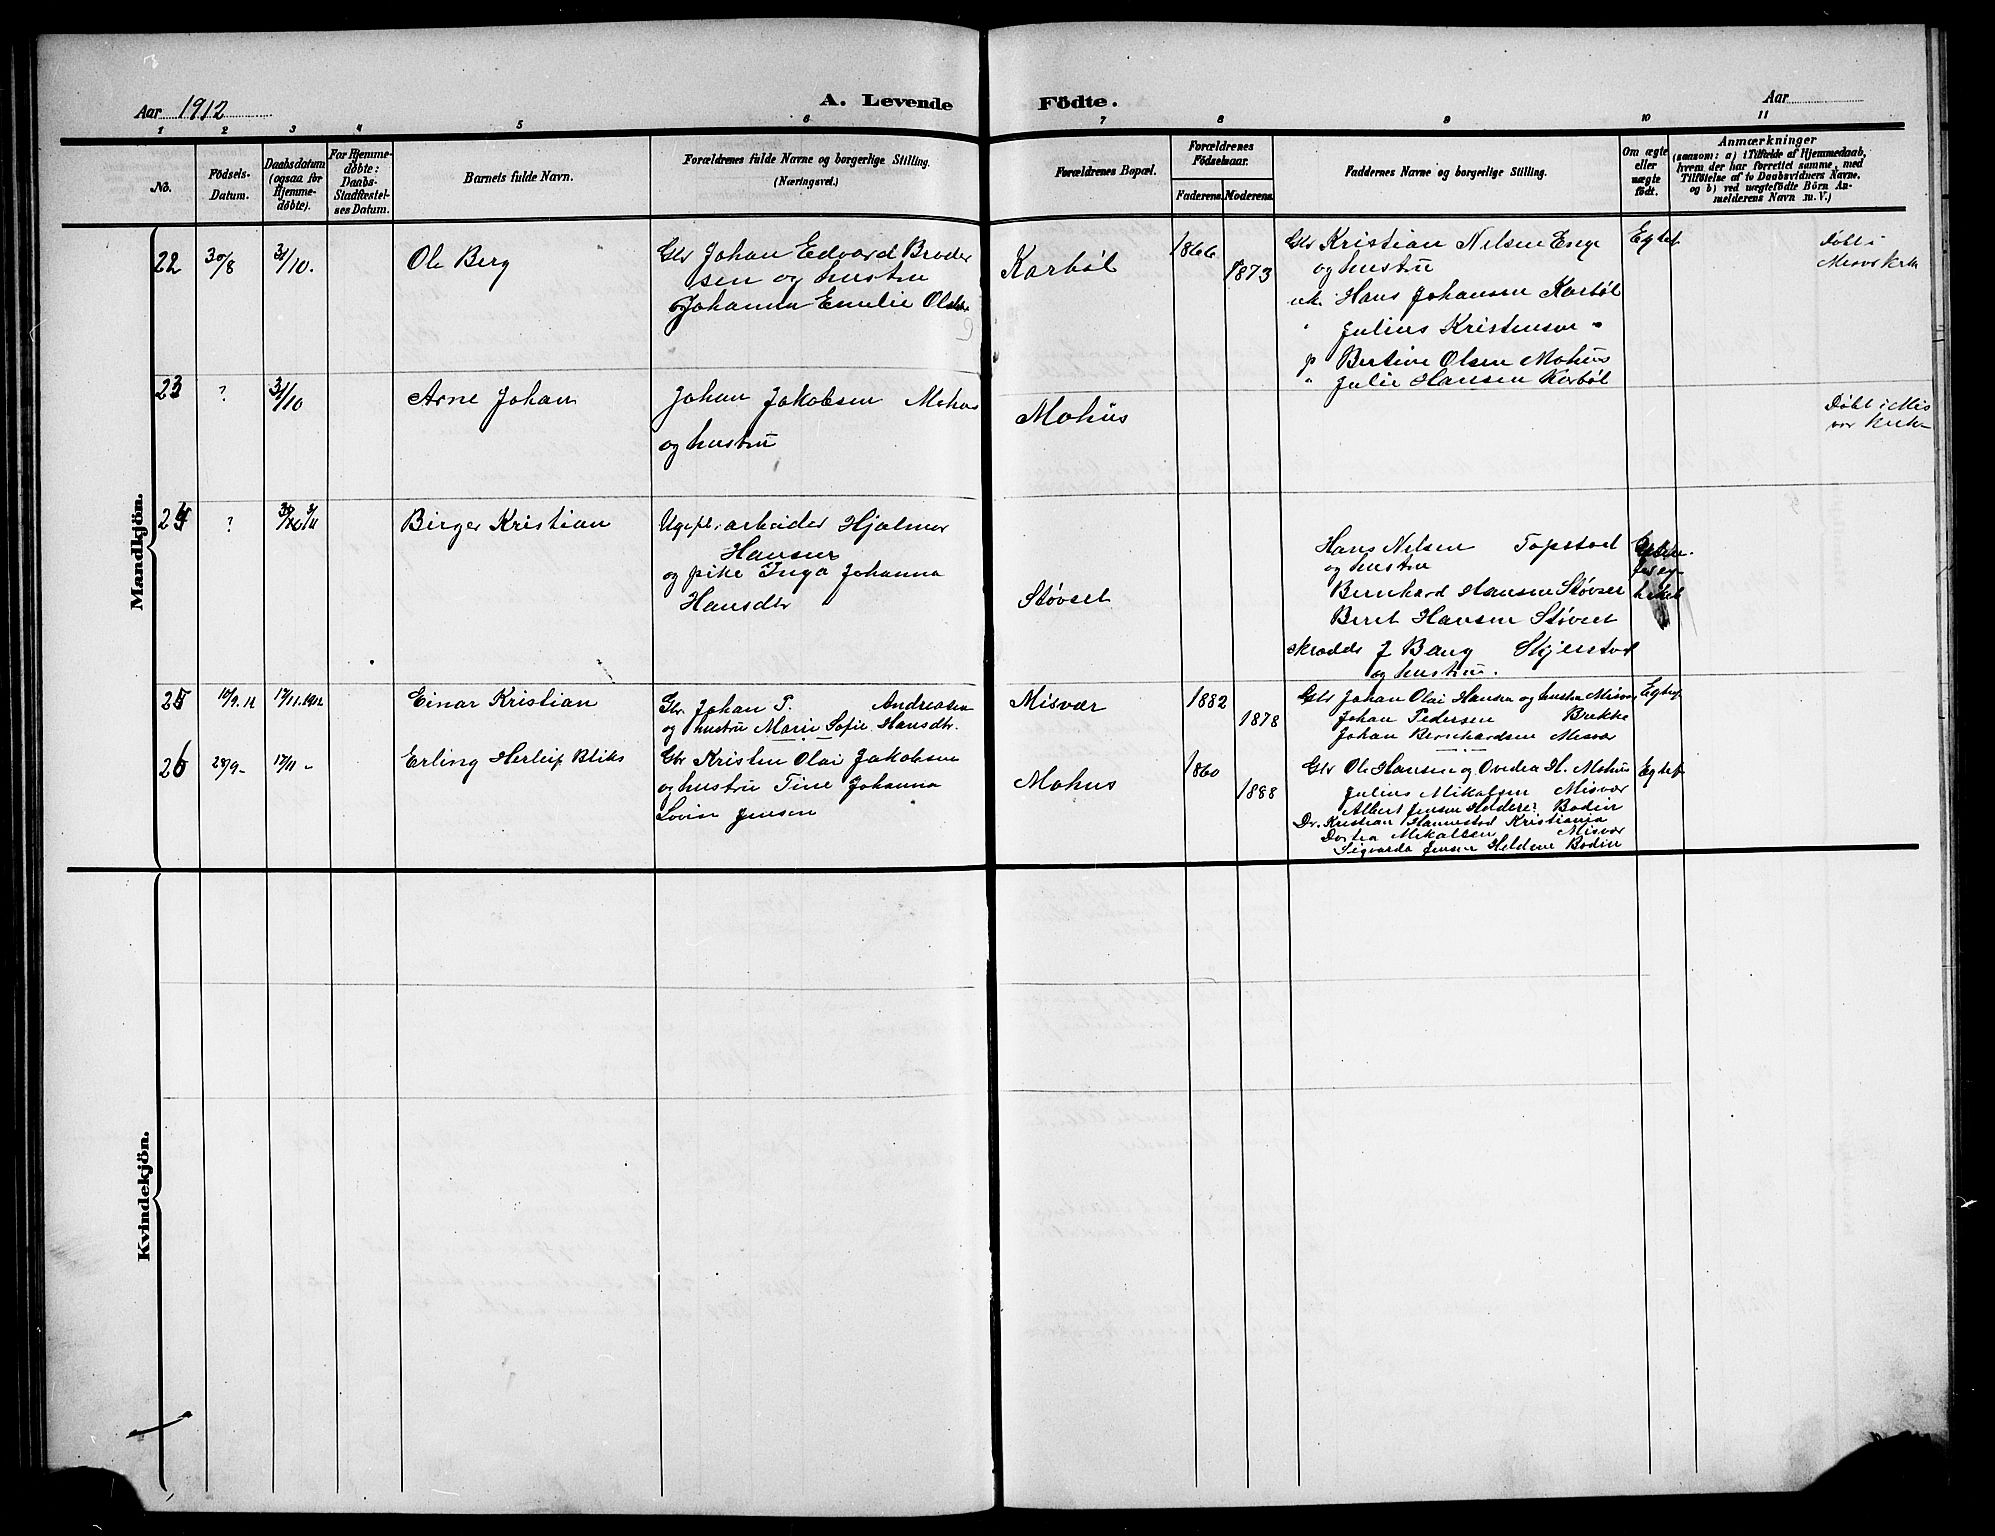 Aar 1912
A. Levende Födte.
Aar
1 2 3 4 5 6 7 8 9 10 11
No.
Födsels-
Datum.
Daabsdatum
(ogsaa for
Hjemme-
döbte).
For Hjemme-
döbte:
Daabs-
Stadfæstel-
ses Datum.
Barnets fulde Navn.
Forældrenes fulde Navne og borgerlige Stilling.
(Næringsvei.)
Forældrenes Bopæl.
Forældrenes
Födselsaar.
Faderens. Moderens.
Faddernes Navne og borgerlige Stilling.
Om ægte
eller
uægte
födt.
Anmærkninger
(saasom: a) i Tilfælde af Hjemmedaab,
hvem der har forrettet samme, med
Tilföielse af to Daabsvidners Navne,
og b) ved uægtefödte Börn An-
melderens Navn m. V.)
Mandkjön.
22 30/8 31/10. Ole Berg
Gbr Johan Edvard Broder
sen og hustru
Johanna Emelie Olsdtr
Karbøl 1866 1873
Gbr Kristian Nilsen Enge
og hustru
uk. Hans Johansen Karbøl
" Julius Kristensen "
p Bertine Olsen Mohus
" Julie Hansen Karbøl
Egtef
Døbt i
Misvær Kirke
23 ? 31/10 Arne Johan
Johan Jakobsen Mohus
og hustru
Mohus
Døbt i Mis
vær Kirke
24 ? Birger Kristian
Ugift arbeider Hjalmar
Hansen
og pike Inga Johanna
Hansdtr
Støvset
Hans Nilsen Topstad
og hustru
Bernhard Hansen Støvset
Beret Hansen Støvset
skrædder J Bang Skjerstad
og hustru.
25 10/9.12 17/11.1912 Einar Kristian
Gbr Johan P. Andreasen
og hustru Marie Sofie Hansdtr.
Misvær 1882 1878
Gbr Johan Olai Hansen og hustru Misvær
Johan Pedersen Brekke
Johan Bernhardsen Misvær
Egtef
26 28/9 - 17/11 - Erling Herleif Bliks
Gbr Kristen Olai Jakobsen
og hustru Tine Johanna
Lovise Jensen
Mohus 1860 1888
Gbr Ole Hansen og Ovedia H. Mohus
Julius Mikalsen Misvær
Albert Jensen Bodin
Dr. Kristian Hannestad Kristiania
Dortea Mikalsen Misvær
Sigvarda Jensen Bodin
Egtef
Kvindekjön.